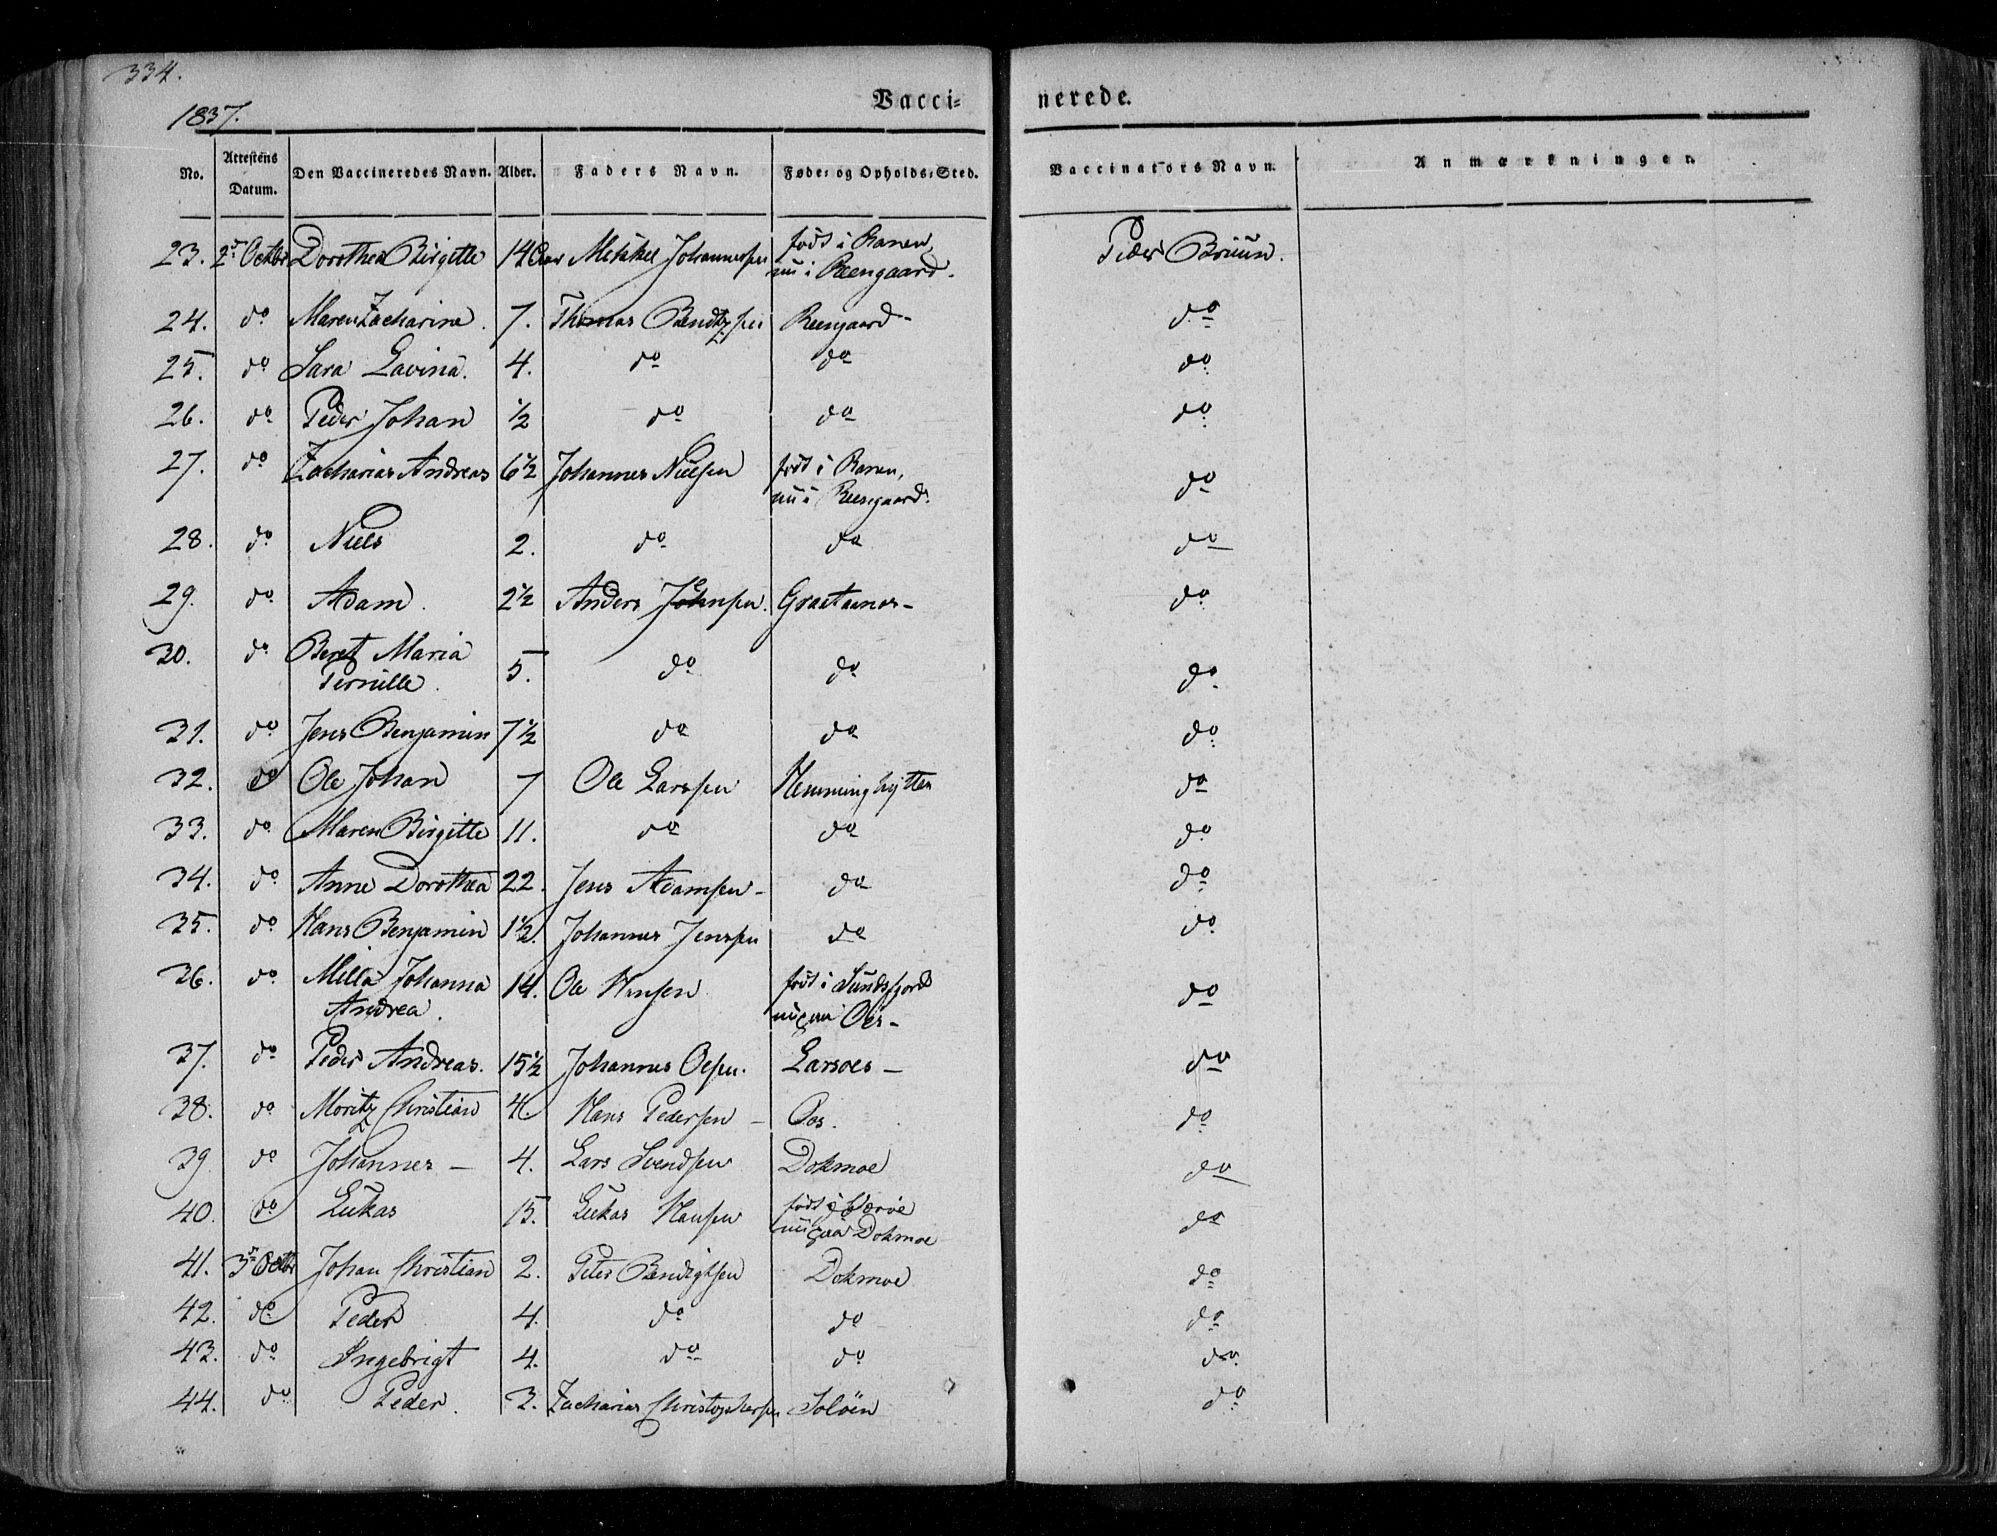 334.
1837.
Vacci- nerede.
No. Attestens Datum. Den Vaccineredes Navn. Alder. Faders Navn. Føde- og Opholds-Sted. Vaccinators Navn. Anmærkninger.
23. 2den Octbr Dorothea Birgitte 14 Aar Mekkel Johannessen født i Ranen, nu i Reengaard. Peder Bruun.
24. do Maren Zacharine. 7. Thomas Bendtzsen Reengaard- do
25. do Sara Lavina. 4. do do do
26. do Peder Johan 1/2 do do do
27. do Zacharias Andreas 6 1/2 Johannes Nielsen født i Ranen, nu i Reengaard. do
28. do Niels 2. do do do
29. do Adam. 2 1/2 Anders Johnsen. Grætaenes- do
30. do Beret Maria Pernille. 5. do do do
31. do Jens Benjamin 7 1/2 do do do
32. do Ole Johan 7 Ole Larssen Hemminghytten do
33. do Maren Birgitte 11. do do do
34. do Anne Dorothea 22. Jens Adamsen- do do
35. do Hans Benjamin 1 1/2. Johannes Jenssen do do
36. do Milla Johanna Andrea. 14. Ole Hansen født i Sundsfjord nu paa Oes- do
37. do Peder Andreas. 15 1/2 Johannes Olsen. Larsoes- do
38. do Moritz Christian 4. Hans Pedersen- Oos. do
39 do Johannes- 4. Lars Svendsen Dokmoe do
40. do Lukas 15. Lukas Hansen født i Værøe nu paa Dokmoe do
41. 3die Octbr Johan Christian 2. Peter Bendigtsen Dokmoe do
42. do Peder 4. do do do
43. do Ingebrigt 4. do do do
44. do Peder. 3. Zacharias Christophersen Soløen do